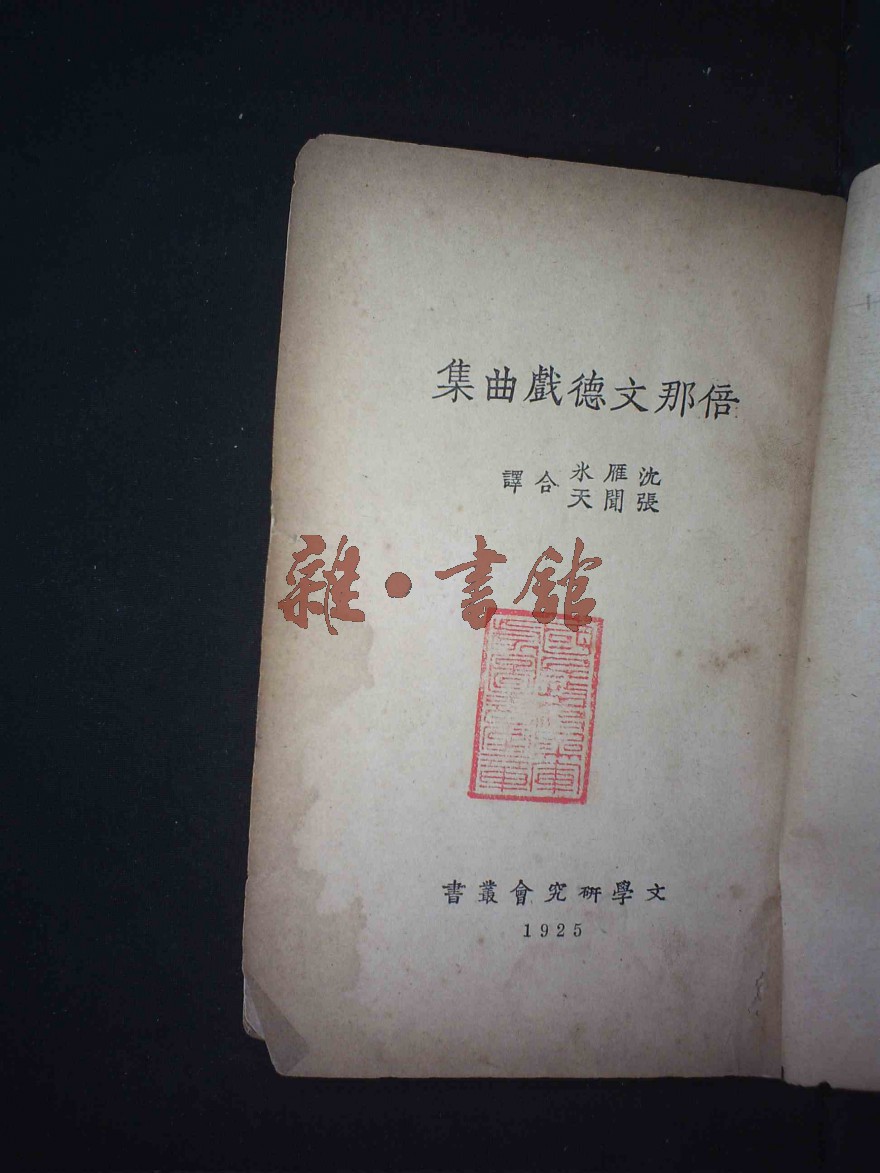 倍那文德戲曲集
沈雁氷
張聞天
合譯
雜·書館
文學研究會叢書
1925